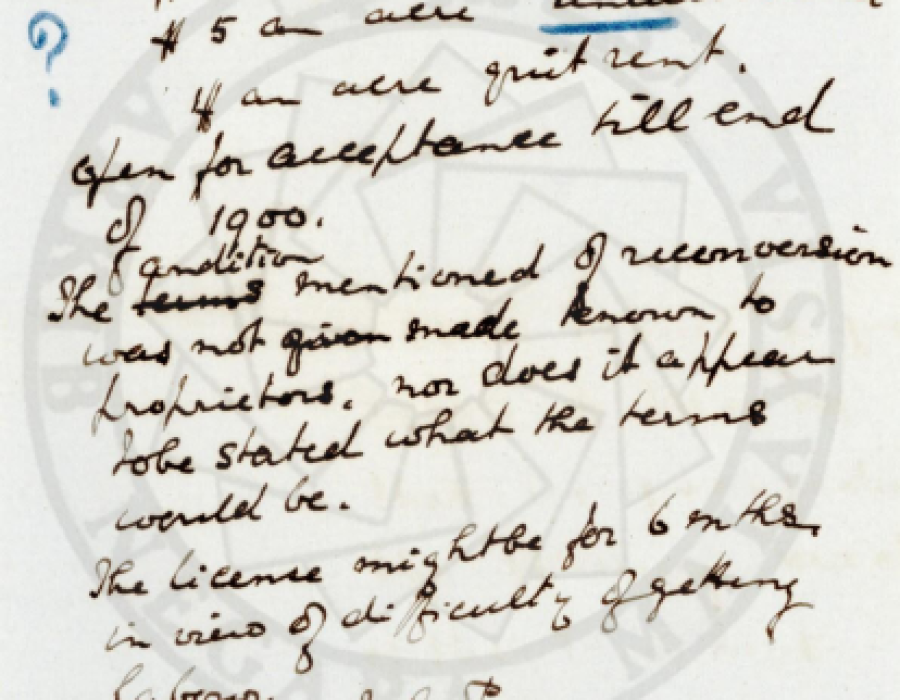 $ 5 an acre
$ an acre quit rent.
open for acceptance till end
of 1900.
condition
The terms mentioned of reconversion
was not given made known to
proprietors. nor does it appear
tobe stated what the terms
would be.
The license mightbe for 6 mths,
in view of difficulty of getting